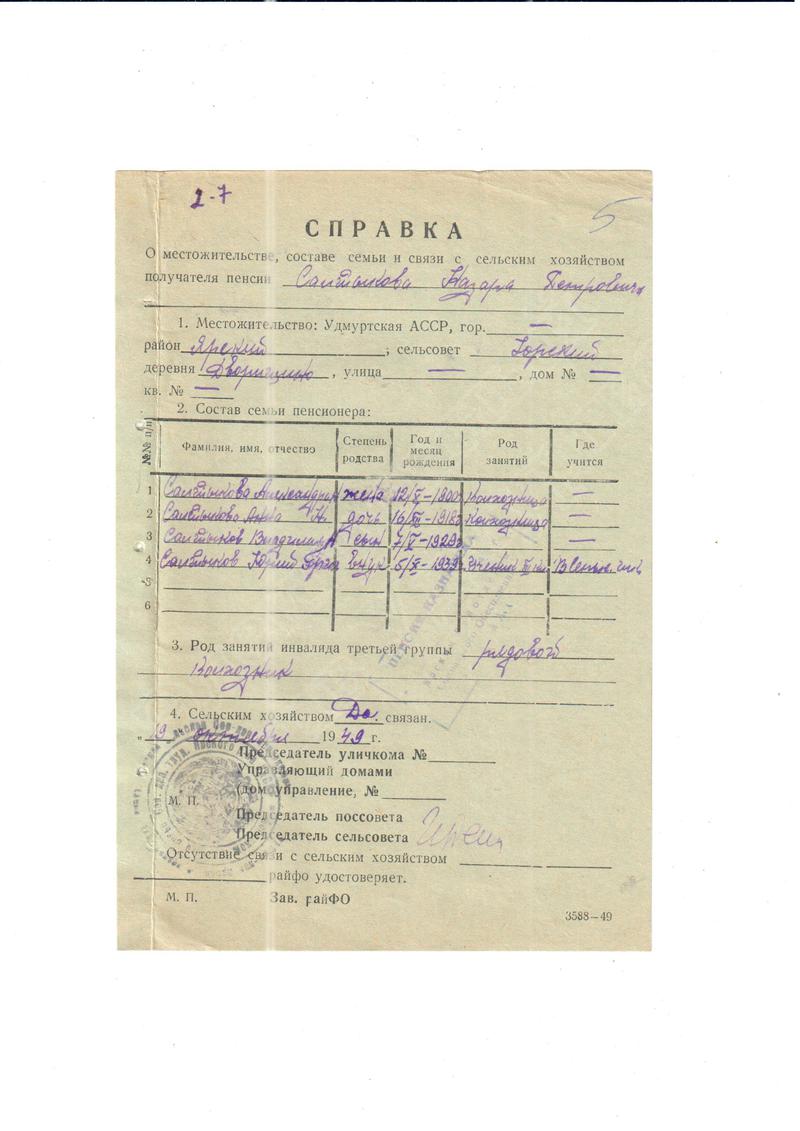 2-7
5
СПРАВКА
О местожительстве, составе семьи и связи с сельским хозяйством
получателя пенсии Салтыкова Назара Петровича
1. Местожительство: Удмуртская АССР, гор. —
район Ярский ; сельсовет Юрский
деревня , улица — , дом № —
кв. № —
2. Состав семьи пенсионера:
№№ п/п Фамилия, имя, отчество Степень родства Год и месяц рождения Род занятий Где учится
1 Салтыкова Александра жена 12/V-1900 Колхозница —
2 Салтыкова Анна Н. дочь 16/ -1918 Колхозница —
3 Салтыков Владимир сын 7/V-1929 —
4 Салтыков Юрий внук 5/X-1939 ученик III кл
5
6
3. Род занятий инвалида третьей группы рядовой
колхозник
4. Сельским хозяйством Да связан.
„19 октября 1949 г.
Председатель уличкома №
Управляющий домами
(домоуправление, №
М. П.
Председатель поссовета
Председатель сельсовета
Отсутствие связи с сельским хозяйством
райфо удостоверяет.
М. П. Зав. райФО
3588—49